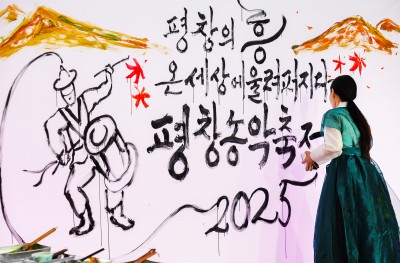 평창의 흥
온 세상에 울려퍼지다
평창농악축제
2025